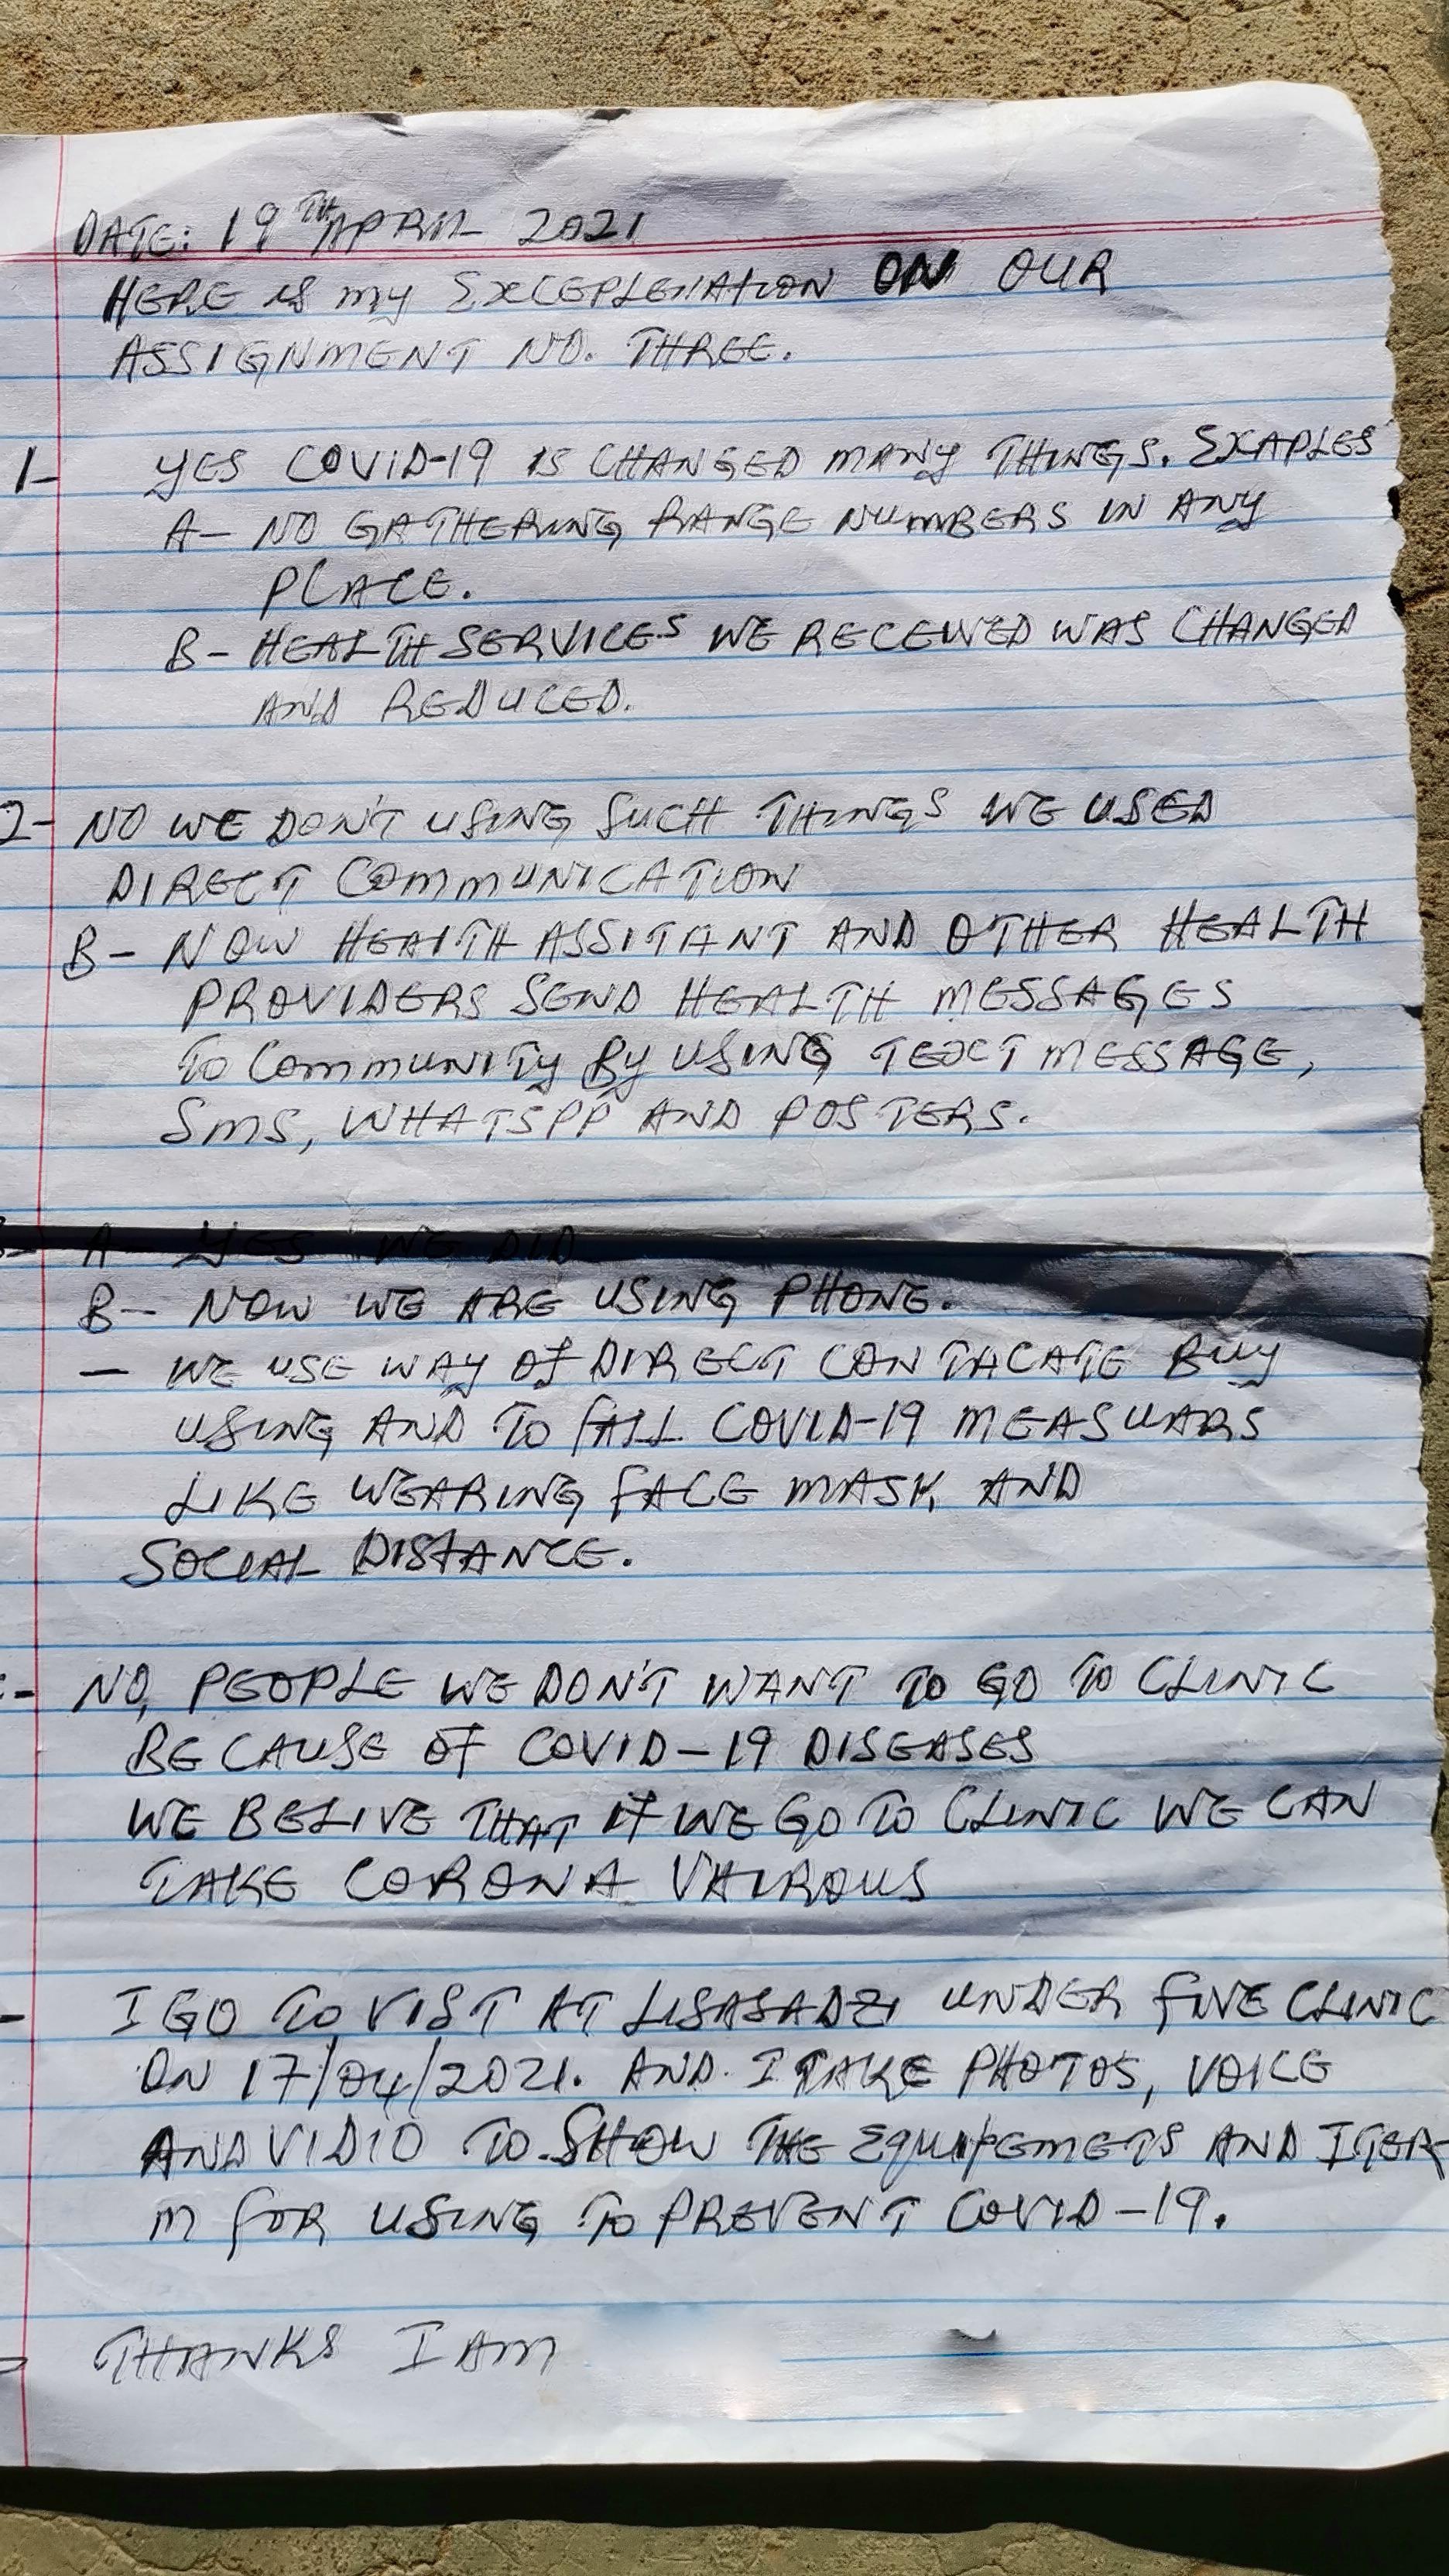 DATE: 19TH APRIL 2021
HERE IS MY EXCEPLENATION ON OUR
ASSIGNMENT NO. THREE.
1- YES COVID-19 IS CHANGED MANY THINGS. EXAPLES
A- NO GATHERING RANGE NUMBERS IN ANY
PLACE.
B- HEALTH SERVICES WE RECEIVED WAS CHANGED
AND REDUCED.
2- NO WE DON'T USING SUCH THINGS WE USED
DIRECT COMMUNICATION
B- NOW HEALTH ASSITANT AND OTHER HEALTH
PROVIDERS SEND HEALTH MESSAGES
TO COMMUNITY BY USING TEXT MESSAGE,
SMS, WHATSPP AND POSTERS.
A- YES WE DID
B- NOW WE ARE USING PHONE.
- WE USE WAY OF DIRECT CONTHCATE BUY
USING AND TO FALL COVID-19 MEASUARS
LIKE WEARING FACE MASK AND
SOCIAL DISTANCE.
- NO, PEOPLE WE DON'T WANT TO GO TO CLINIC
BECAUSE OF COVID-19 DISEASES
WE BELIVE THAT IF WE GO TO CLINIC WE CAN
TAKE CORONA VAIROUS
- I GO TO VIST AT LISASADZI UNDER FIVE CLINIC
ON 17/04/2021. AND I TAKE PHOTOS, VOICE
AND VIDIO TO SHOW THE EQUIPEMETS AND ITER
M FOR USING TO PREVENT COVID-19.
THANKS I AM